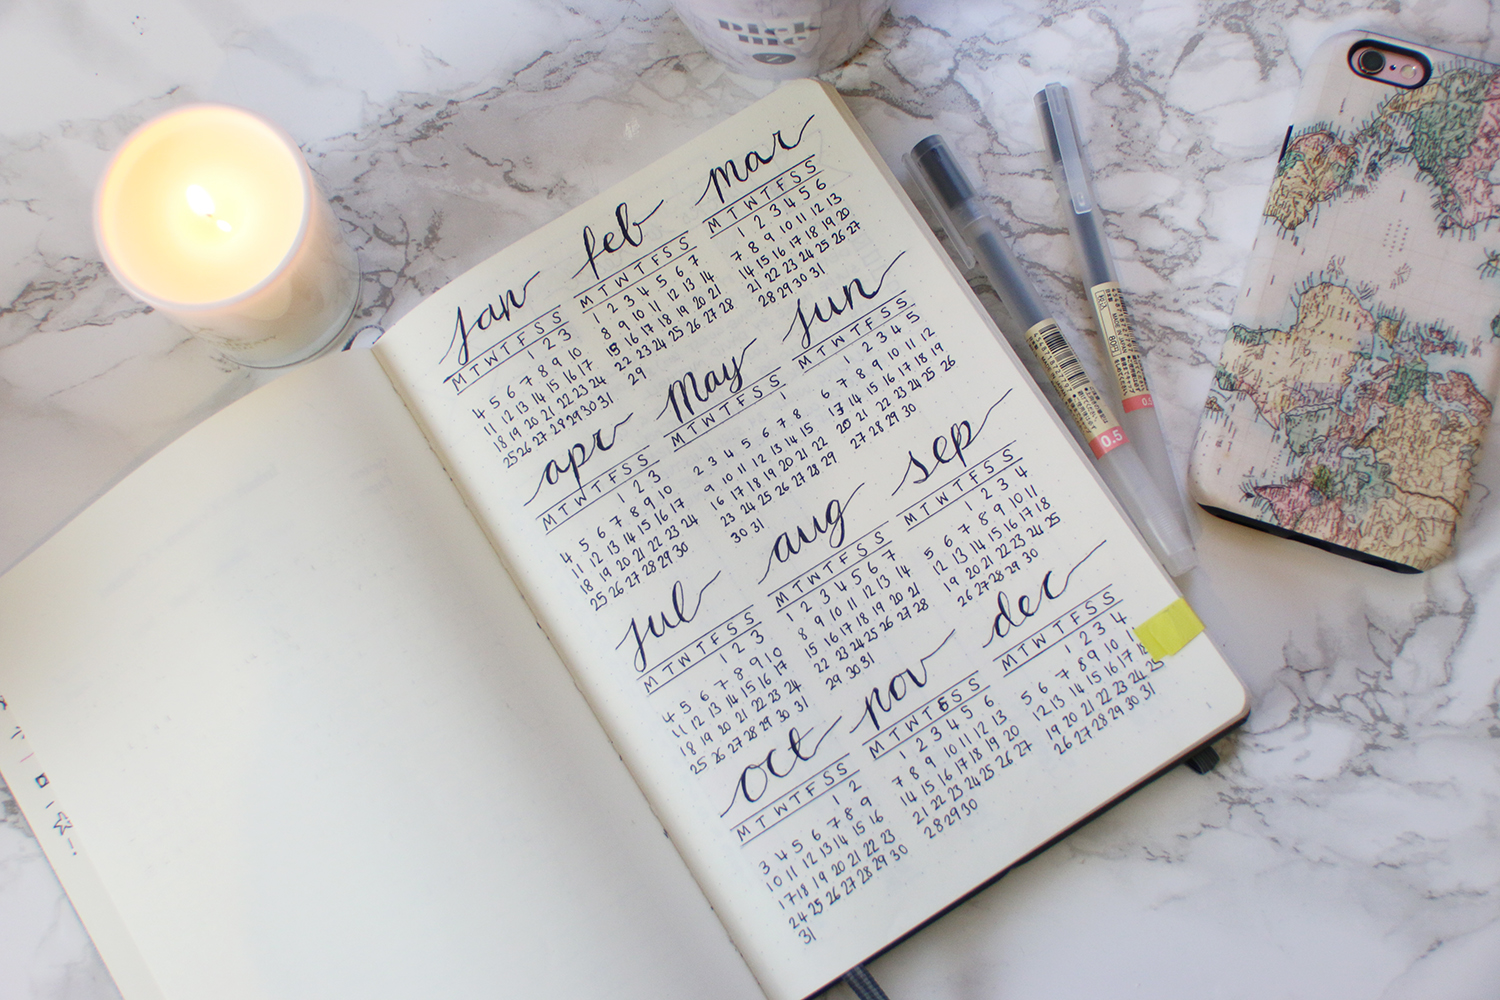 pick
me
jan
M T W T F S S
1 2 3
4 5 6 7 8 9 10
11 12 13 14 15 16 17
18 19 20 21 22 23 24
25 26 27 28 29 30 31
feb
M T W T F S S
1 2 3 4 5 6 7
8 9 10 11 12 13 14
15 16 17 18 19 20 21
22 23 24 25 26 27 28
29
mar
M T W T F S S
1 2 3 4 5 6
7 8 9 10 11 12 13
14 15 16 17 18 19 20
21 22 23 24 25 26 27
28 29 30 31
apr
M T W T F S S
1 2 3
4 5 6 7 8 9 10
11 12 13 14 15 16 17
18 19 20 21 22 23 24
25 26 27 28 29 30
May
M T W T F S S
1
2 3 4 5 6 7 8
9 10 11 12 13 14 15
16 17 18 19 20 21 22
23 24 25 26 27 28 29
30 31
jun
M T W T F S S
1 2 3 4 5
6 7 8 9 10 11 12
13 14 15 16 17 18 19
20 21 22 23 24 25 26
27 28 29 30
jul
M T W T F S S
1 2 3
4 5 6 7 8 9 10
11 12 13 14 15 16 17
18 19 20 21 22 23 24
25 26 27 28 29 30 31
aug
M T W T F S S
1 2 3 4 5 6 7
8 9 10 11 12 13 14
15 16 17 18 19 20 21
22 23 24 25 26 27 28
29 30 31
sep
M T W T F S S
1 2 3 4
5 6 7 8 9 10 11
12 13 14 15 16 17 18
19 20 21 22 23 24 25
26 27 28 29 30
oct
M T W T F S S
1 2
3 4 5 6 7 8 9
10 11 12 13 14 15 16
17 18 19 20 21 22 23
24 25 26 27 28 29 30
31
nov
M T W T F S S
1 2 3 4 5 6
7 8 9 10 11 12 13
14 15 16 17 18 19 20
21 22 23 24 25 26 27
28 29 30
dec
M T W T F S S
1 2 3 4
5 6 7 8 9 10 11
12 13 14 15 16 17 18
19 20 21 22 23 24 25
26 27 28 29 30 31
0.5
0.5